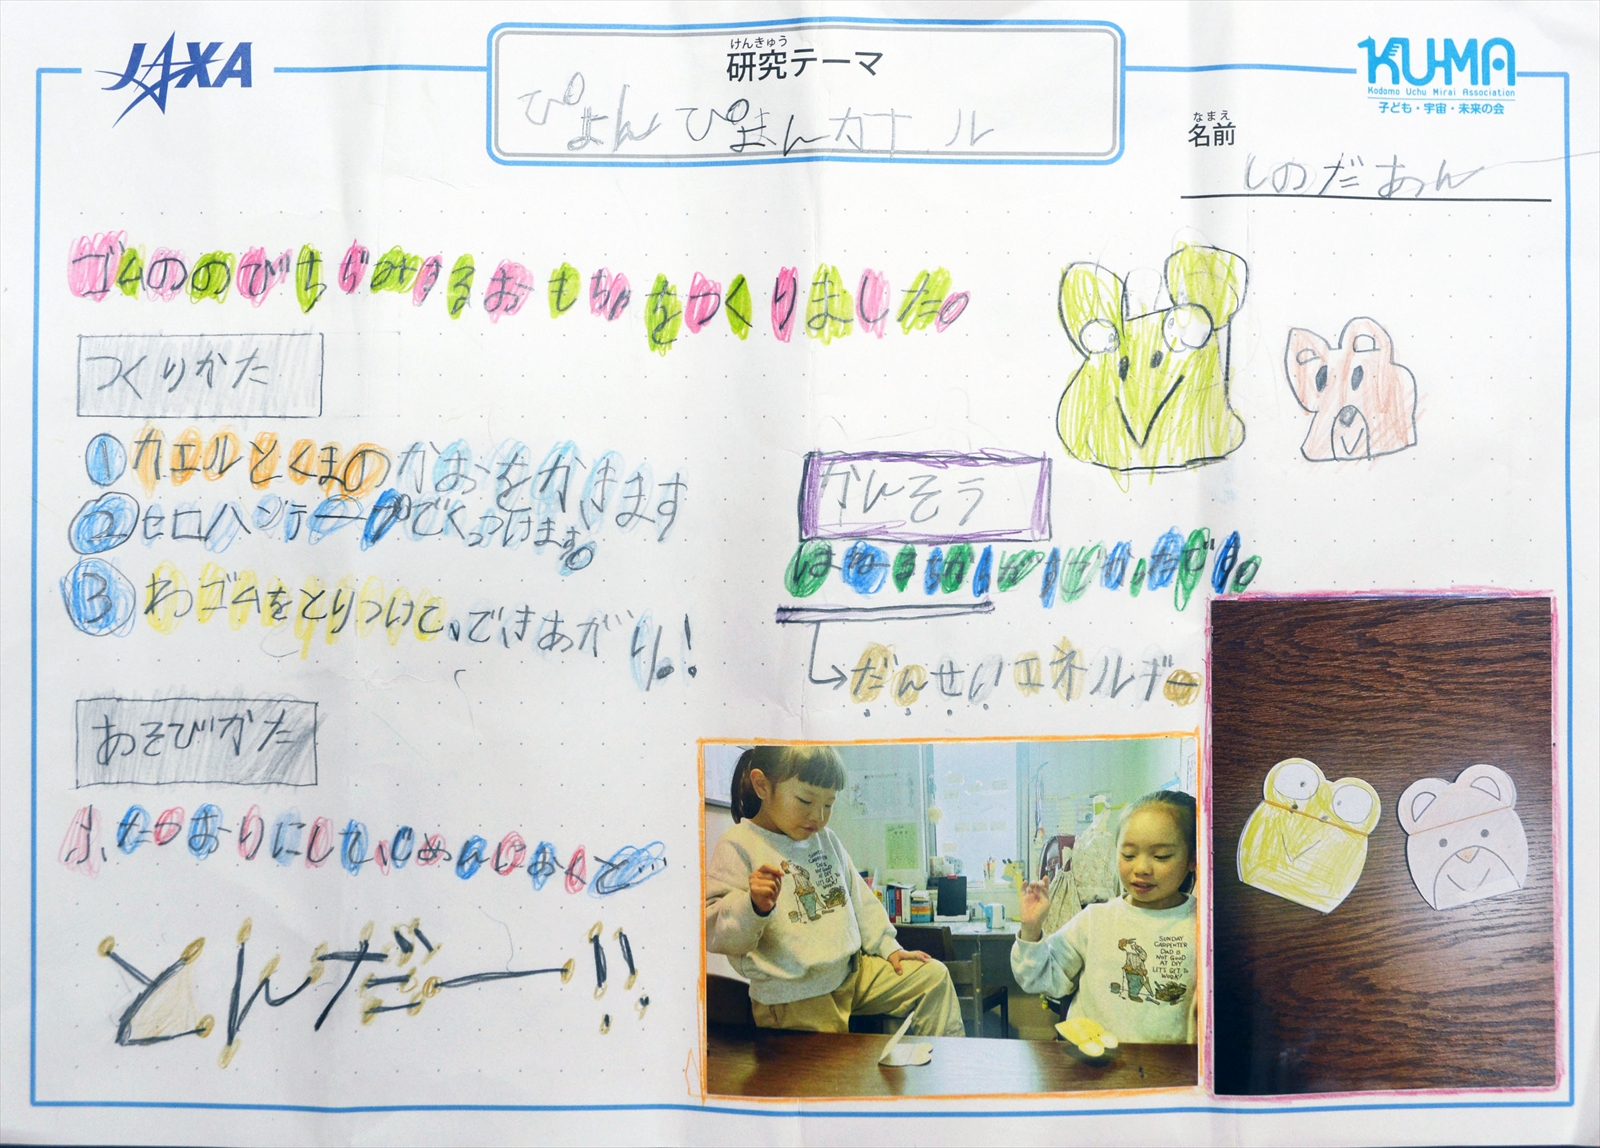 JAXA
けんきゅう
研究テーマ
ぴょんぴょんカエル
KU-MA
Kodomo Uchu Mirai Association
子ども・宇宙・未来の会
なまえ
名前
しのだあん
ゴムののびちぢみするおもちゃをつくりました。
つくりかた
①カエルとくまのかおをかきます
②セロハンテープでくっつけます。
③わゴムをとりつけて、できあがり!
あそびかた
ふたつおりにして、じめんにおくと…
とんだー!!
かんそう
はねるちからがすごかったです。
だんせいエネルギー
SUNDAY
CARPENTER
DAD IS
NOT GOOD
AT DIY
LET'S GET TO
WORK!
SUNDAY
CARPENTER
DAD IS
NOT GOOD
AT DIY
LET'S GET TO
WORK!